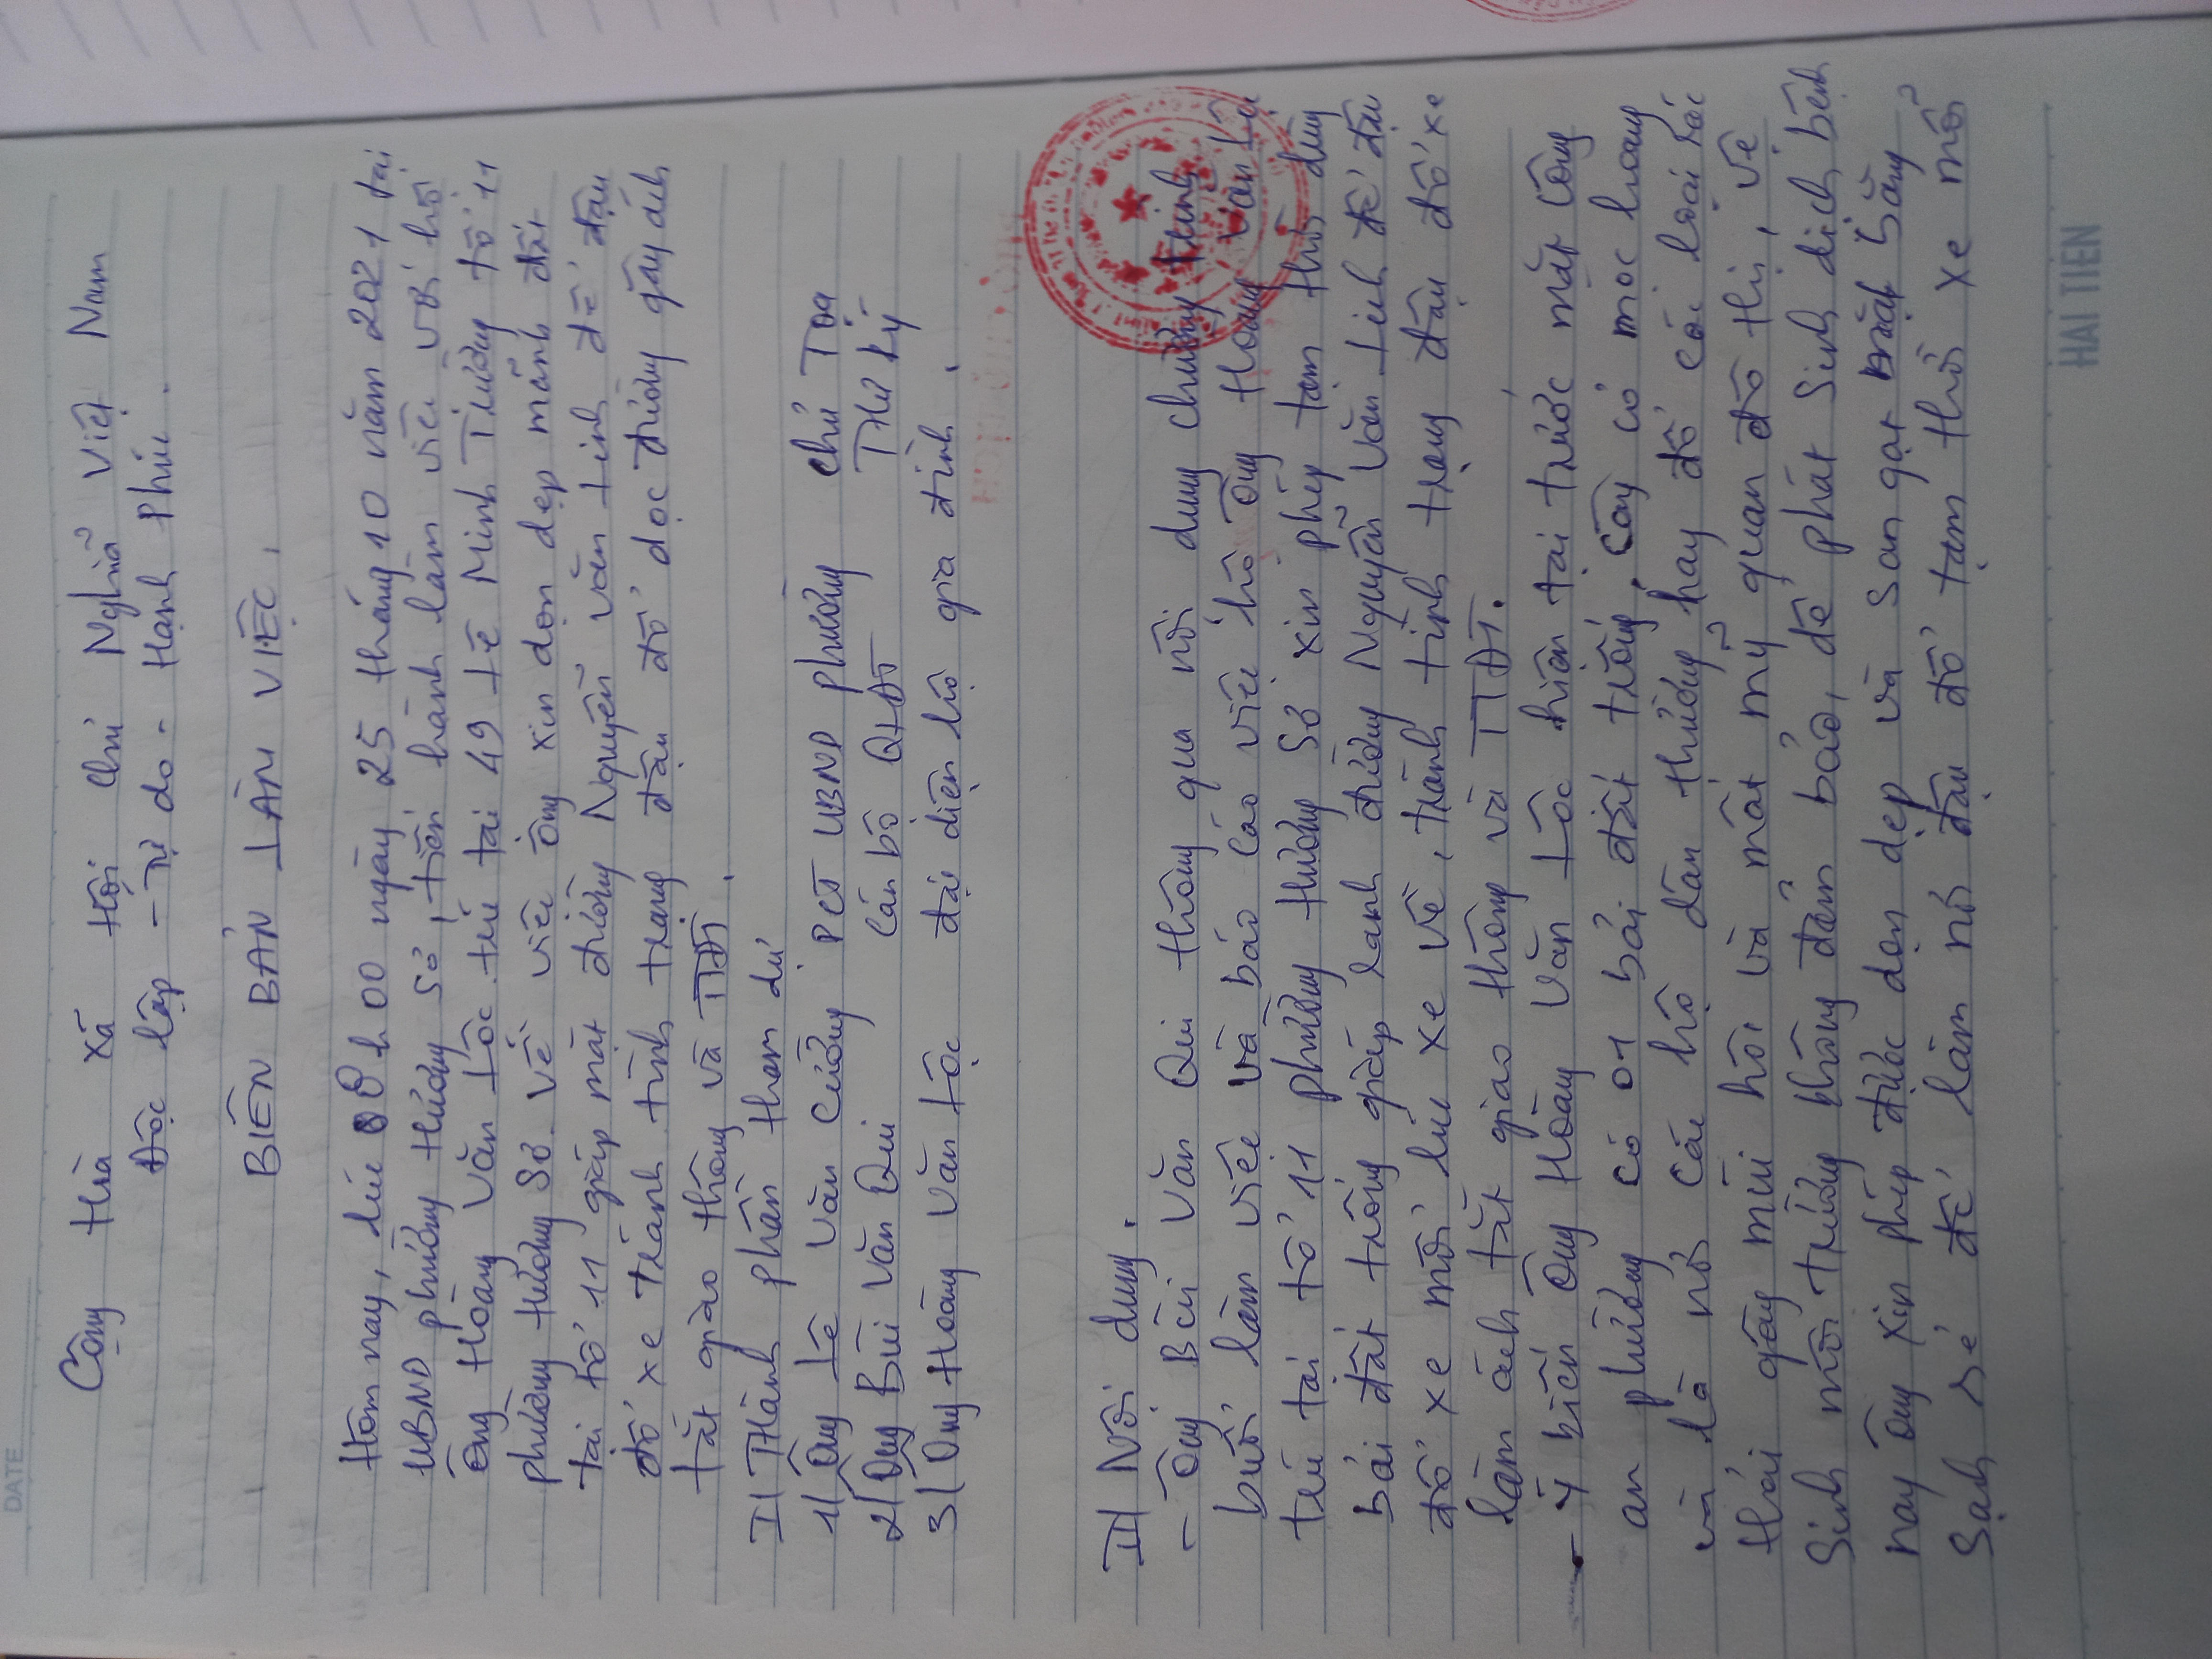 DATE
Cộng Hòa xã Hội chủ Nghĩa Việt Nam
Độc lập - Tự do - Hạnh phúc.
BIÊN BẢN LÀM VIỆC.
Hôm nay, lúc 8h00 ngày 25 tháng 10 năm 2021 tại
UBND phường Hương Sơ, tiến hành làm việc với hộ
ông Hoàng Văn Lộc trú tại 49 Lê Minh Trường tổ 11
phường Hương Sơ. Về việc ông xin dọn dẹp mảnh đất
tại tổ 11 giáp mặt đường Nguyễn Văn Linh để đậu
đỗ xe Tránh tình trạng đậu đỗ dọc đường gây ách
tắt giao thông và TTĐT.
I/ Thành phần tham dự
1/ Ông Lê Văn Cường PCT UBND phường chủ Tọa
2/ Ông Bùi Văn Qui cán bộ QLĐT Thư ký
3/ Ông Hoàng Văn Lộc đại diện hộ gia đình.
II/ Nội dung.
- Ông Bùi Văn Qui thông qua nội dung chương trình
buổi làm việc và báo cáo việc hộ ông Hoàng Văn Lộc
trú tại tổ 11 phường Hương Sơ xin phép tạm thời dùng
bãi đất trống giáp ranh đường Nguyễn Văn Linh để đậu
đỗ xe mỗi lúc xe về, tránh tình trạng đậu đỗ xe
làm ách tắt giao thông và TTĐT.
- Ý kiến Ông Hoàng Văn Lộc hiện tại trước mặt công
an phường có 01 bãi đất trống, cây cỏ mọc hoang
và là nơi các hộ dân thường hay đổ các loại rác
thải gây mùi hôi và mất mỹ quan đô thị, vệ
sinh môi trường không đảm bảo, dễ phát sinh dịch bệnh
nay ông xin phép được dọn dẹp và san gạt mặt bằng
sạch sẽ để làm nơi đậu đỗ tạm thời xe mỗi
HẢI TIẾN